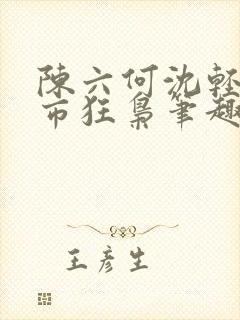 陳六何沈輕
市狂梟筆趣
王彥生